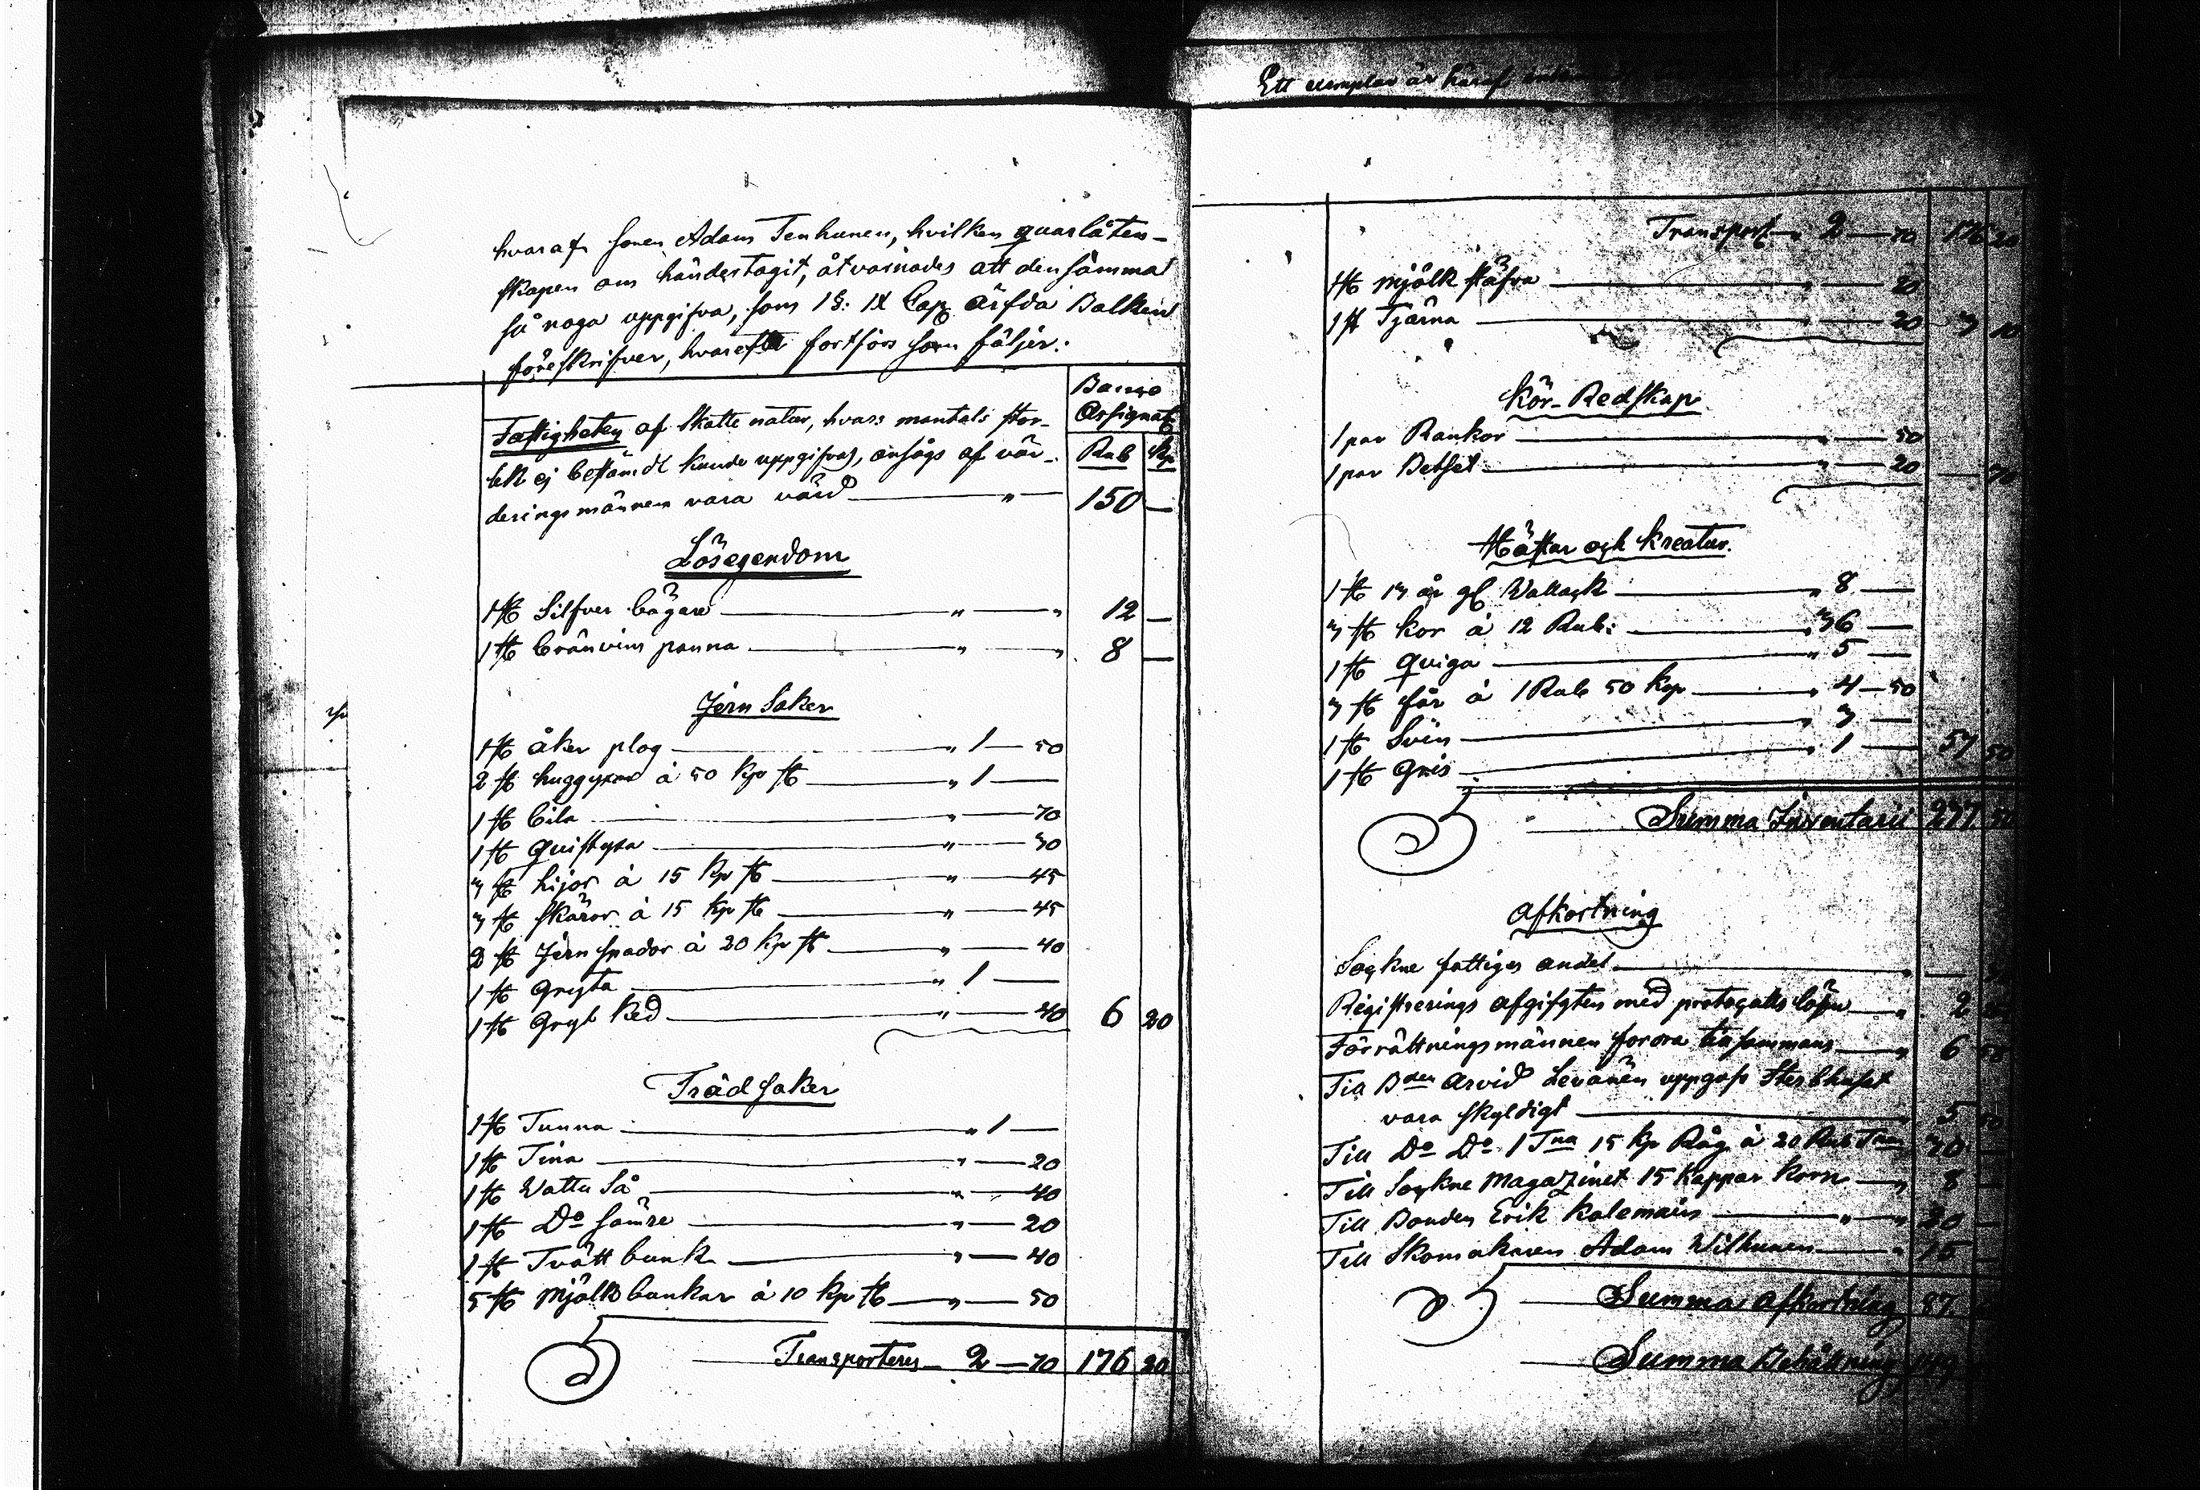 hvaraf sonen Adam Tenhunen, hvilken quarlåten-
skapen om händertagit, åtvarnades att densamma
så noga uppgifva, som 1 §: IX Cap. ärfda Balken
föreskrifver, hvarefter fortfors som följer:
Banco
Assignat
Rub Kp
Fastigheten af skatte natur, hvars mantals stor-
lek ej bestämdt kunde uppgifvas, ansågs af vär-
deringsmännen vara värd " 150 —
Lösegendom
1 st Silfver bägare " " 12 —
1 st bränvins panna " " 8 —
Jern Saker
1 st åker plog " 1 — 50
2 st huggyxor à 50 Kp st " 1 —
1 st bila " — 70
1 st quistyxa " — 30
3 st lijor à 15 Kp st " — 45
3 st skäror à 15 Kp st " — 45
2 st Jern spador à 20 Kp st " — 40
1 st gryta " 1 —
1 st Gryt Ked " — 40 6 20
Träd saker
1 st Tunna " 1 —
1 st Tina " — 20
1 st Vattu Så " — 40
1 st Do sämre " — 20
1 st Tvätt bunk " — 40
5 st Mjölk bunkar à 10 Kp st " — 50
Transporteres 2 — 70 176 20
Ett exemplar är häraf
Transport " 2 — 70 176 20
1 st mjölk stäfva " — 20
1 st Tjärna " — 20 3 10
Kör-Redskap
1 par Rankor " — 50
1 par Betsel " — 20 — 70
Hästar och Kreatur.
1 st 13 år gl Wallack " 8 —
3 st kor à 12 Rub: " 36 —
1 st Quiga " 5 —
3 st får à 1 Rub 50 Kp " 4 — 50
1 st Svin " 3 —
1 st Gris " 1 — 57 50
Summa Inventarii 237 50
Afkortning
Sockne fattiges andel " —
Registrerings afgifften med protocolls lösen " 2
Förrättningsmännen förora tillsammans " 6
Till Bden Arvid Levänen uppgafs Sterbhuset
vara skyldigt 5
Till Do Do 1 Tna 15 Kp Råg à 20 Rub Tna 30 —
Till Sockne Magazinet 15 Kappar Korn " 8 —
Till Bonden Erik Kolemain " " 20 —
Till Skomakaren Adam Wilhunen " 15 —
Summa Afkortning 87
Summa Behållning 149